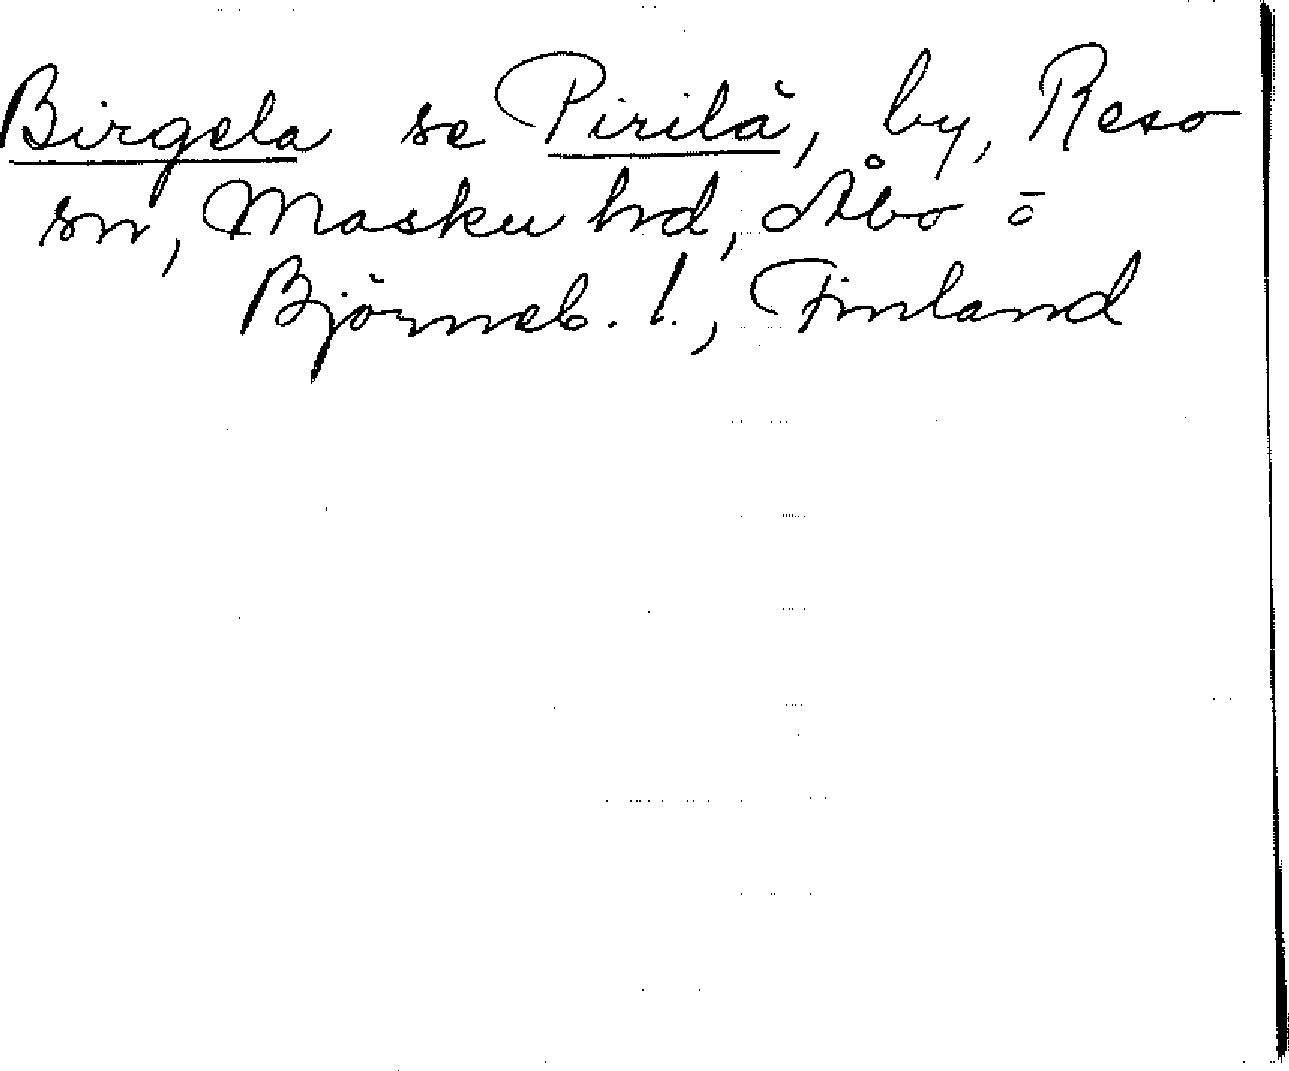 Birgela se Pirilä, by, Reso
sn, Masku hd, Åbo o
Björneb. l., Finland